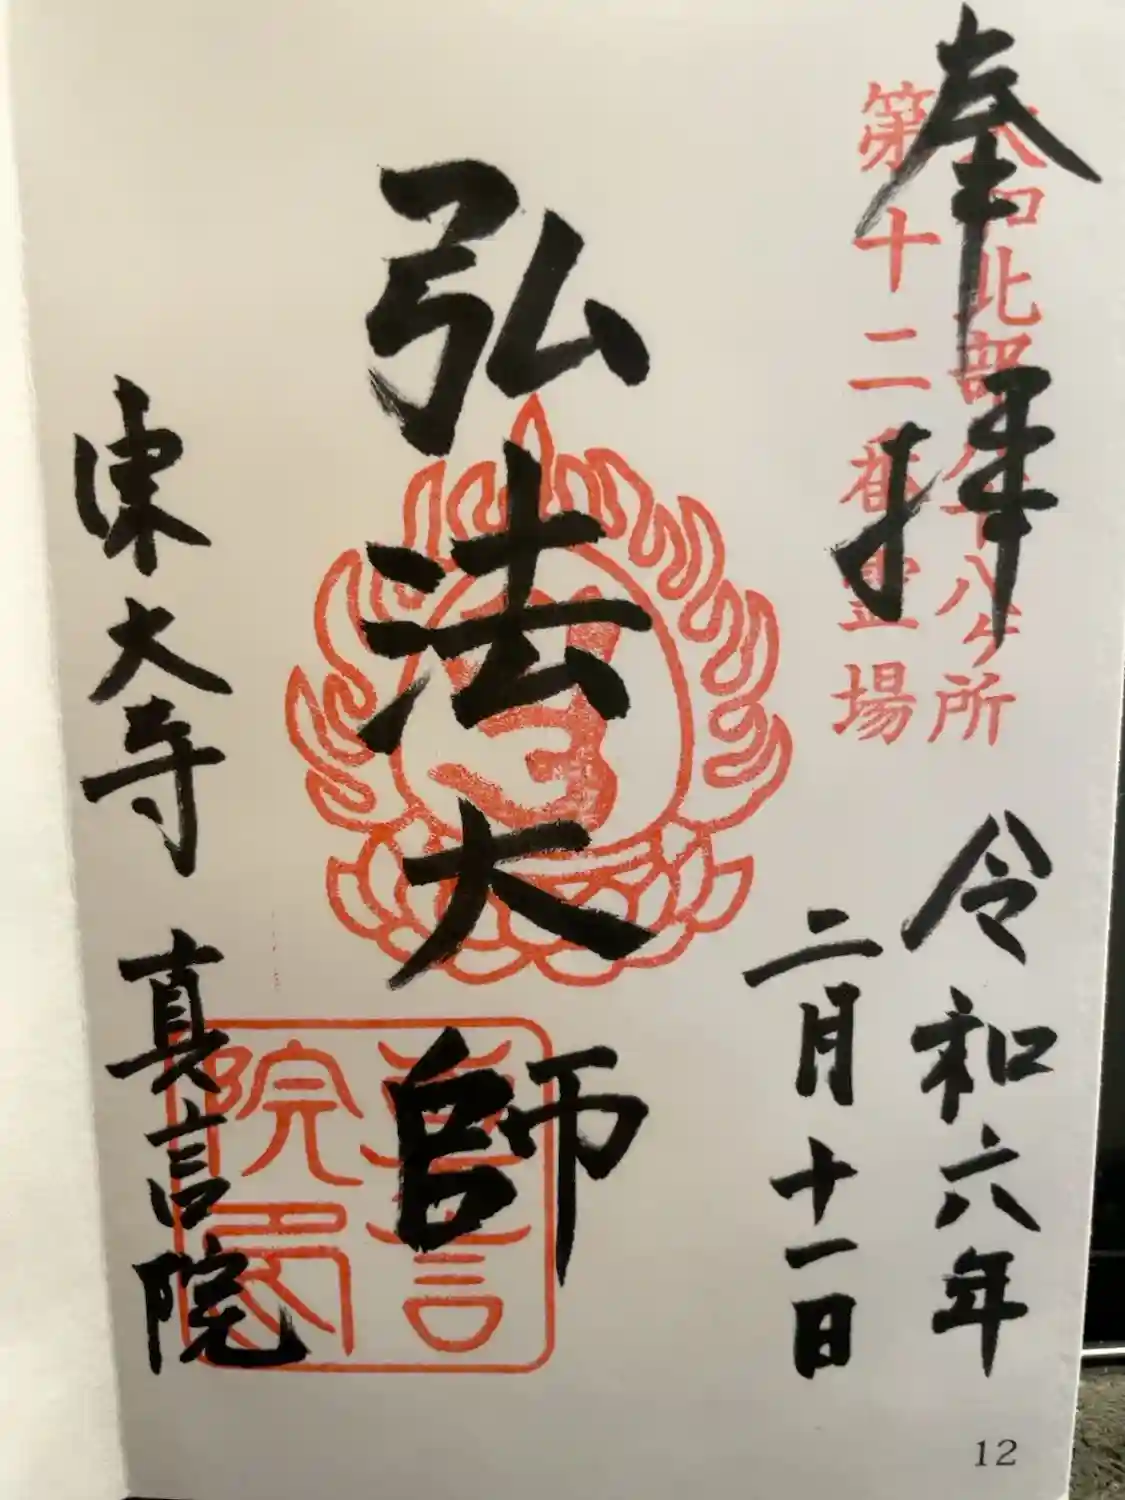 奉拝
大和北部八十八ヶ所
第十二番霊場
令和六年
二月十一日
弘法大師
東大寺 真言院
真言
院印
12